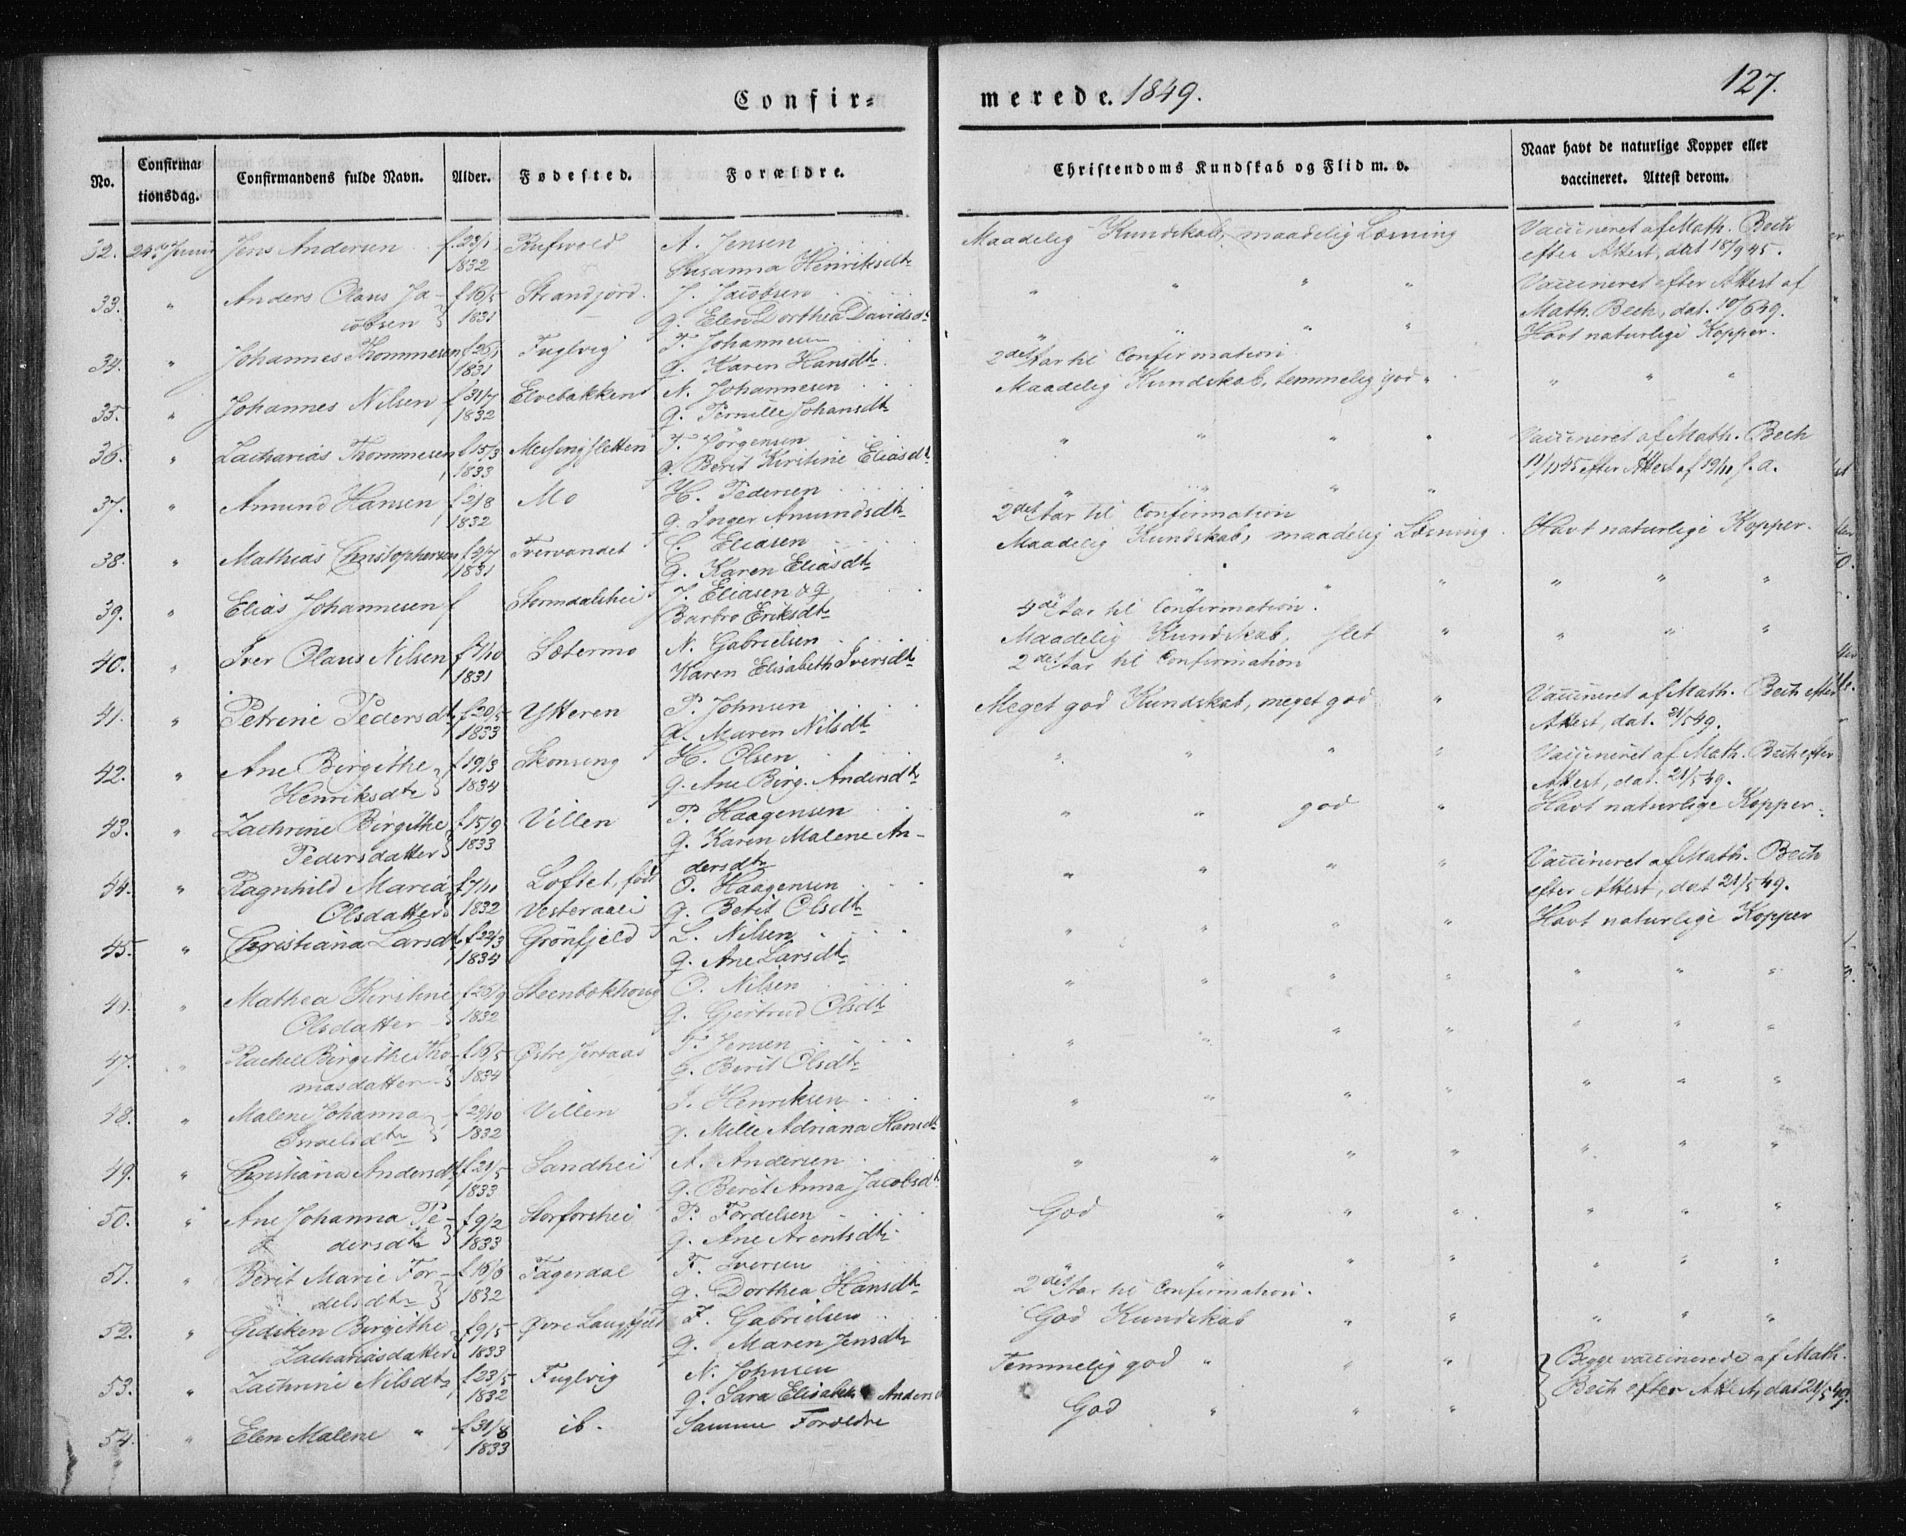 Confir=
merede. 1849.
127.
No.
Confirma=
tionsdag.
Confirmandens fulde Navn.
Alder.
Fødested.
Forældre.
Christendoms Kundskab og Flid m. v.
Naar havt de naturlige Kopper eller
vaccineret. Attest derom.
32. 24de Juni Jens Andersen f. 23/1 Rufsvold A. Jensen Maadelig Kundskab, maadelig Læsning Vaccineret af Math. Bech
1832 Susanna Henriksdtr efter Attest, dat 18/9 45.
33. " Anders Olaus Ja- f 16/5 Strandjord. J. Jacobsen " " " " Vaccineret efter Attest af
cobsen } 1831 g. Elen Dorthea Davidsdr Math. Bech, dat. 10/6 49.
34. " Johannes Thommesen f 26/1 Fuglvig T. Johannesen " " " " Havt naturlige Kopper.
1831 g. Karen Hansdtr 2det Aar til Confirmation
35. " Johannes Nilsen f 31/7 Elvebakken N. Johannesen Maadelig Kundskab, temmelig god " " " "
1832 g. Pernille Johansdtr
36. " Zacharias Thommesen f 15/3 Messingsletten T. Jörgensen " " " " Vaccineret af Math. Bech
1833 g. Berit Kirstine Eliasdr 11/11 45 efter Attest af 19/11 s. a.
37. " Amund Hansen f 2/8 Mo H. Pedersen " " " "
1832 g. Inger Amundsdtr 2det Aar til Confirmation
38. " Mathias Christophersen f 9/7 Tvervandet C. Eliasen Maadelig Kundskab, maadelig Læsning. Havt naturlige Kopper.
1831 g. Karen Eliasdtr
39. " Elias Johannesen f Stormdalshei J. Eliasen & g " " " " " "
Barbro Eriksdtr 4de Aar til Confirmation.
40. " Iver Olaus Nilsen f 7/10 Sætermo N. Gabrielsen Maadelig Kundskab, slet " " " "
1831 Karen Elisabeth Iversdtr 2det Aar til Confirmation
41. " Petrine Pedersdtr f 20/5 Ytteren P. Johnsen Meget god Kundskab, meget god " Vaccineret af Math. Bech efter
1833 g. Maren Nilsdtr Attest, dat. 21/5 49.
42. " Ane Birgithe f 19/3 Skonseng H. Olsen " " " " Vaccineret af Math. Bech efter
Henriksdtr } 1834 g. Ane Birg. Andersdtr Attest, dat. 21/5 49.
43. " Zachrine Birgithe f 15/9 Villen P. Haagensen " " god " Havt naturlige Kopper.
Pedersdatter } 1833 g. Karen Malene An-
dersdtr
44. " Ragnhild Maria f 7/11 Loftet, född O. Haagensen " " " " Vaccineret af Math. Bech
Olsdatter } 1832 Vesteraalen g. Berit Olsdtr efter Attest, dat 21/5 49.
45. " Christiana Larsdtr f 22/3 Grönfjeld L. Nilsen " " " " Havt naturlige Kopper
1834 g. Ane Larsdtr
46. " Mathea Kirstine f 25/9 Steenbokhoug O. Nilsen " " " " " " "
Olsdatter } 1832 g. Gjertrud Olsdtr
47. " Rachel Birgithe Tho- f 16/5 Østre Jertaas T. Jensen " " " " " " "
masdatter } 1834 g. Berit Olsdtr
48. " Malene Johanna f 29/10 Villen I. Henriksen " " " " " " "
Israelsdtr } 1832 g. Mille Adriana Hansdtr
49. " Christiana Andersdtr f 21/5 Sandhei A. Andersen " " " " " " "
1833 g. Berit Anna Jacobsdtr
50. " Ane Johanna Pe- f 9/2 Storforshei P. Fordelsen God " " " " " "
dersdtr } 1833 g. Ane Arentsdtr
51. " Berit Marie For- f 16/6 Fagerdal F. Iversen " " " " " " "
delsdtr } 1832 g. Dorthea Hansdtr 2det Aar til Confirmation.
52. " Gediken Birgithe f 9/5 Øvre Langfjeld Z. Gabrielsen God Kundskab " " " " "
Zachariasdatter } 1833 g. Maren Jensdtr
53. " Zachrine Nilsdtr f 23/5 Fuglvig N. Johnsen Temmelig god " " " } Begge vaccinerede af Math.
1832 g. Sara Elisabeth Anders Bech efter Attest, dat 21/5 49.
54. " Elen Malene " f 31/8 ib. Samme Forældre God " " "
1833